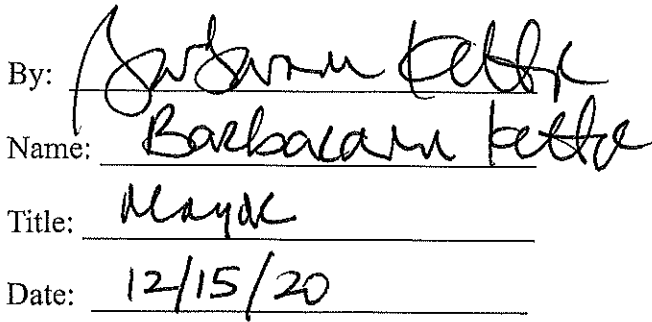 By: Barbaram Keffer
Name: Barbarann Keffer
Title: Mayor
Date: 12/15/20